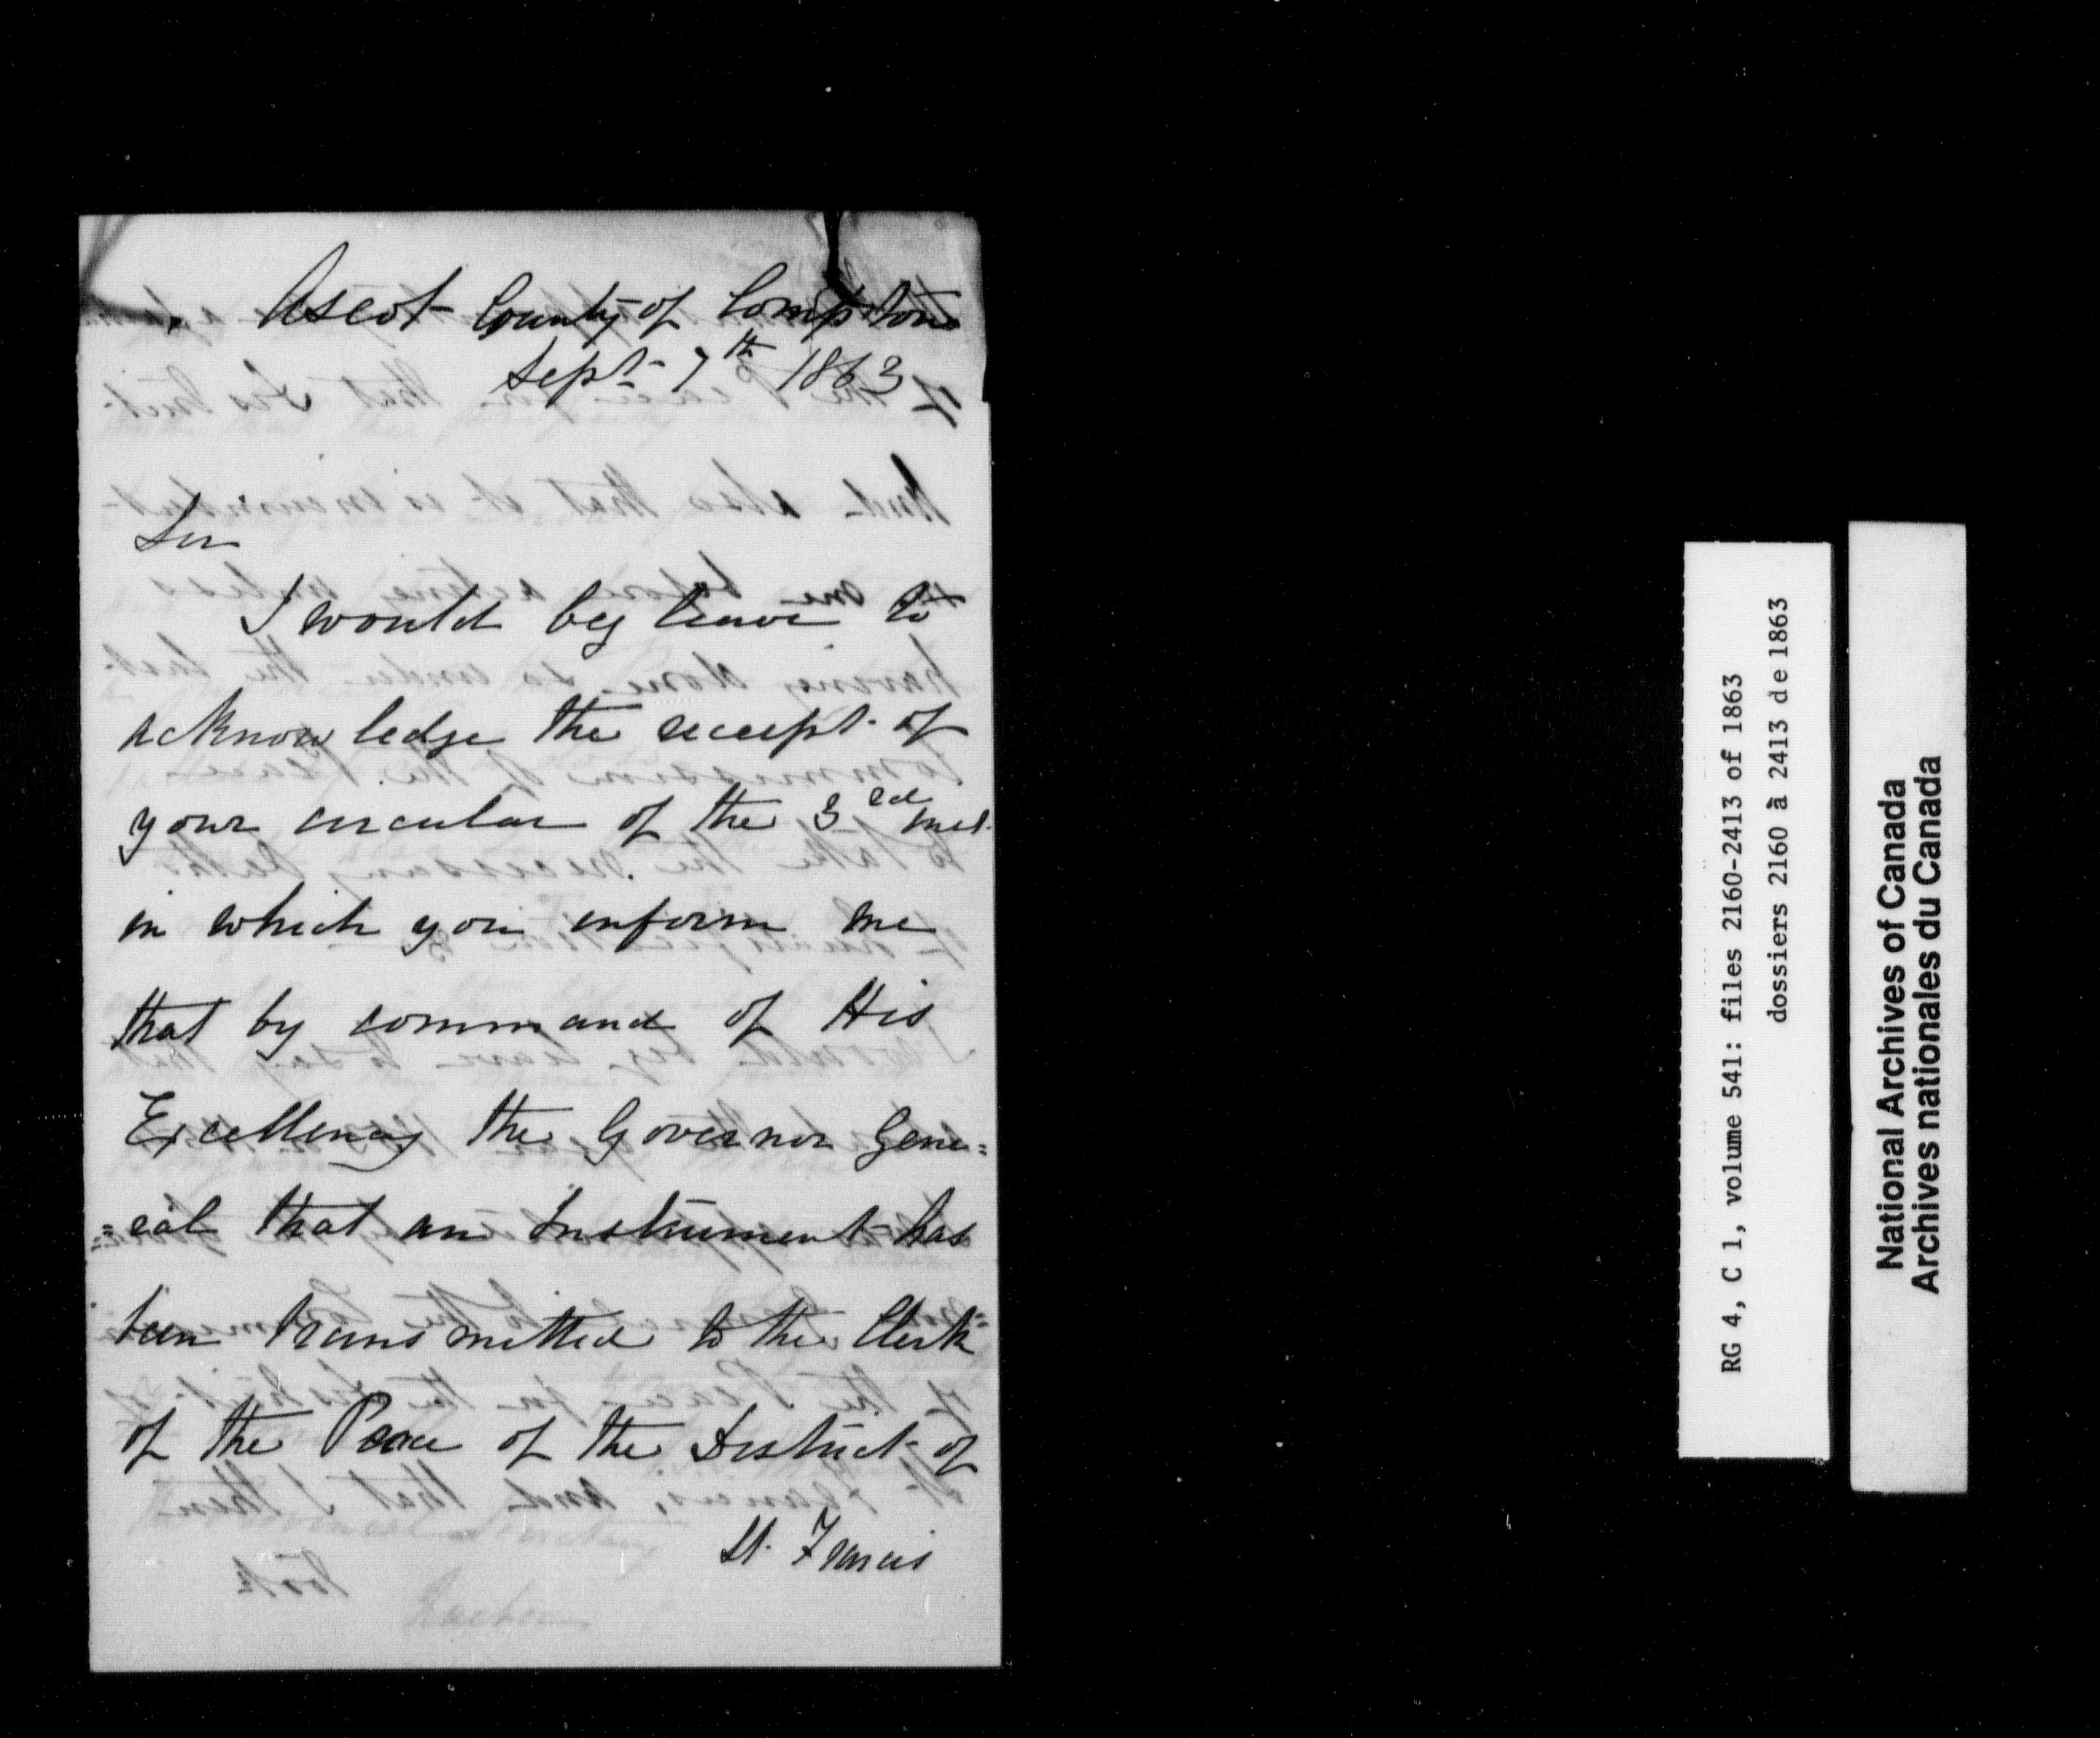 Ascot County of Compton
Sept. 7th 1863
Sir
I would beg leave to
acknowledge the receipt of
your circular of the 3rd inst.
in which you inform me
that by command of His
Excellency the Governor Gene=
=ral that an Instrument has
been transmitted to the Clerk
of the Peace of the District of
St. Francis
RG 4, C 1, volume 541: files 2160-2413 of 1863
dossiers 2160 à 2413 de 1863
National Archives of Canada
Archives nationales du Canada